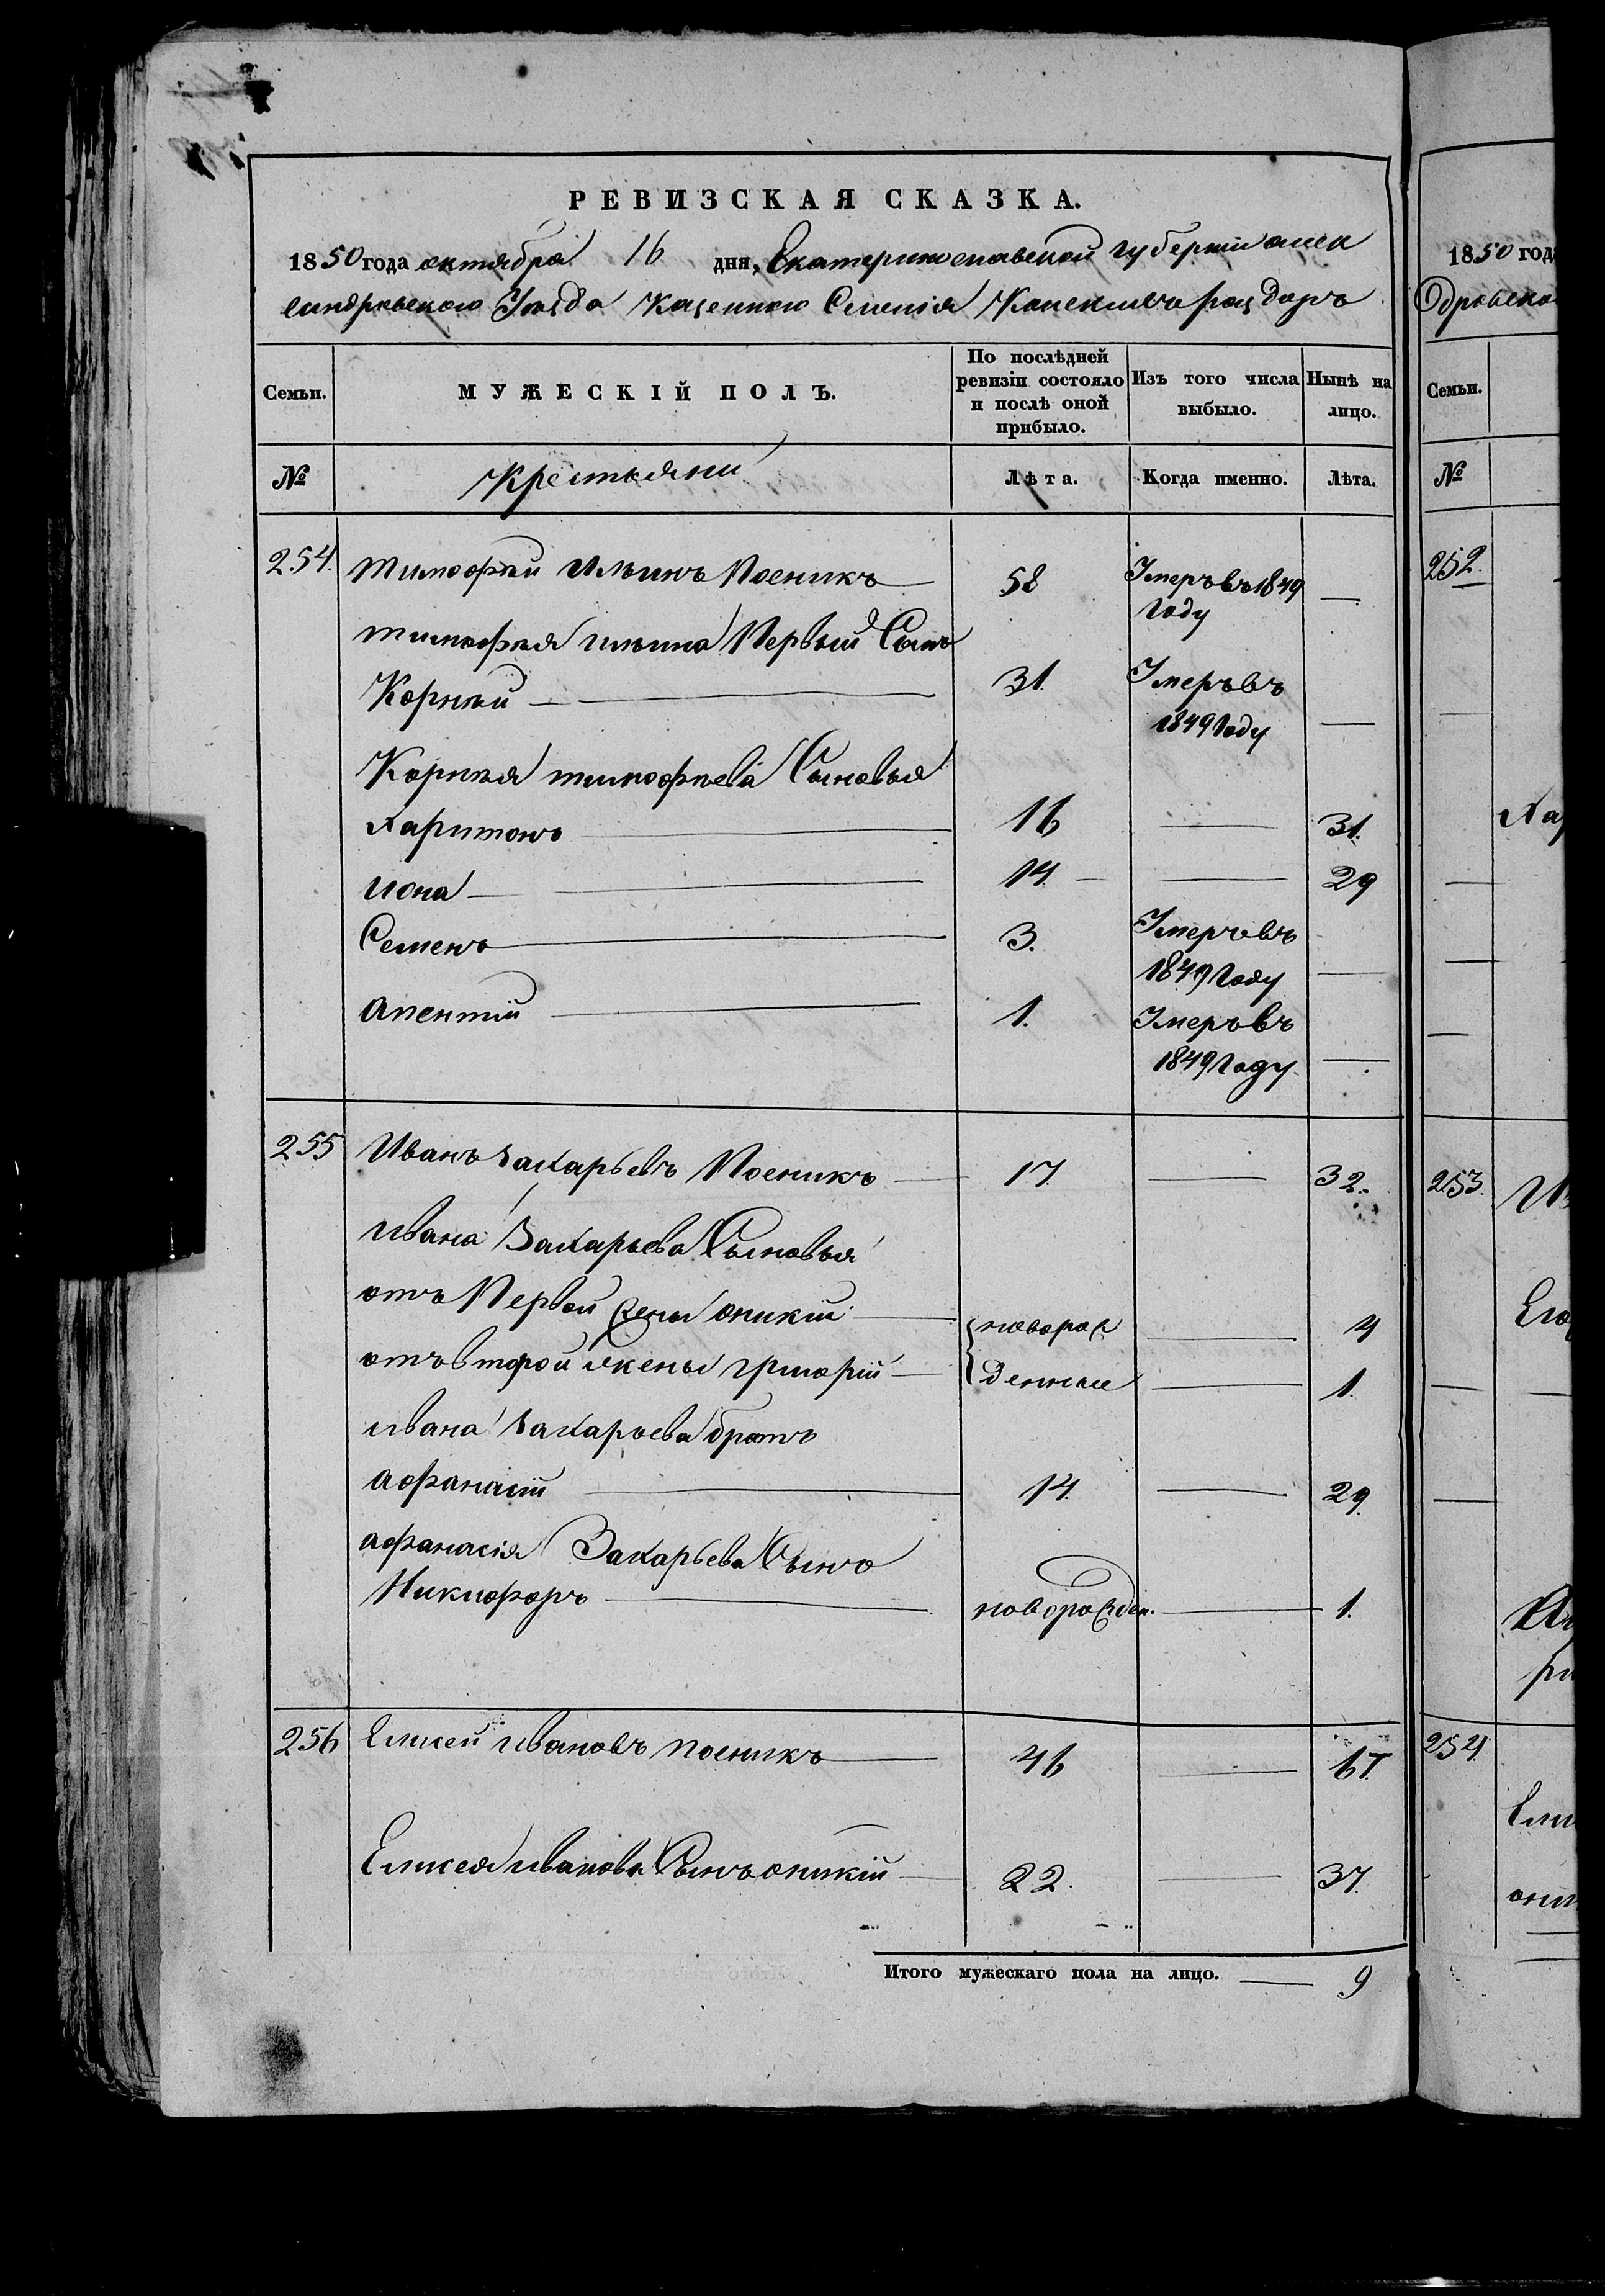 РЕВИЗСКАЯ СКАЗКА.
1850 года октября 16 дня, Екатеринославской губернiи алек
сандровского Уѣзда Казенного Селенiя Конскихъ раздоръ
Семьи. МУЖЕСКІЙ ПОЛЪ. По послѣдней ревизіи состояло и послѣ оной прибыло. Изъ того числа выбыло. Нынѣ на лицо.
№ Крестьяни Лѣта. Когда именно. Лѣта.
254. тимофѣй Ильинъ Посникъ 58 Умеръ въ 1849 Году —
тимофѣя ильина Первый Сынъ
Корнѣй 31. Умеръ въ 1849 Году —
Корнѣя тимофѣева Сыновья
Харитонъ 16 — 31.
Иона 14 — 29
Семенъ 3. Умеръ въ 1849 Году —
Апентiй 1. Умеръ въ 1849 Году —
255 Иванъ Захарьевъ Посникъ 17. — 32.
Ивана Захарьева Сыновья
отъ Первой жены оникiй новорож — 4
отъ второй жены григорiй денные — 1.
ивана Захарьева братъ
афанасiй 14. — 29.
афанасiя Захарьева Сынъ
Никифоръ новорожден. — 1.
256 Елисей ивановъ посникъ 46 — 61.
Елисея иванова Сынъ оникiй 22. — 37.
Итого мужескаго пола на лицо. — 9
1850 года
Одровско
Семьи.
№
252.
Хар
253. Ив
Его
254.
Ели
они